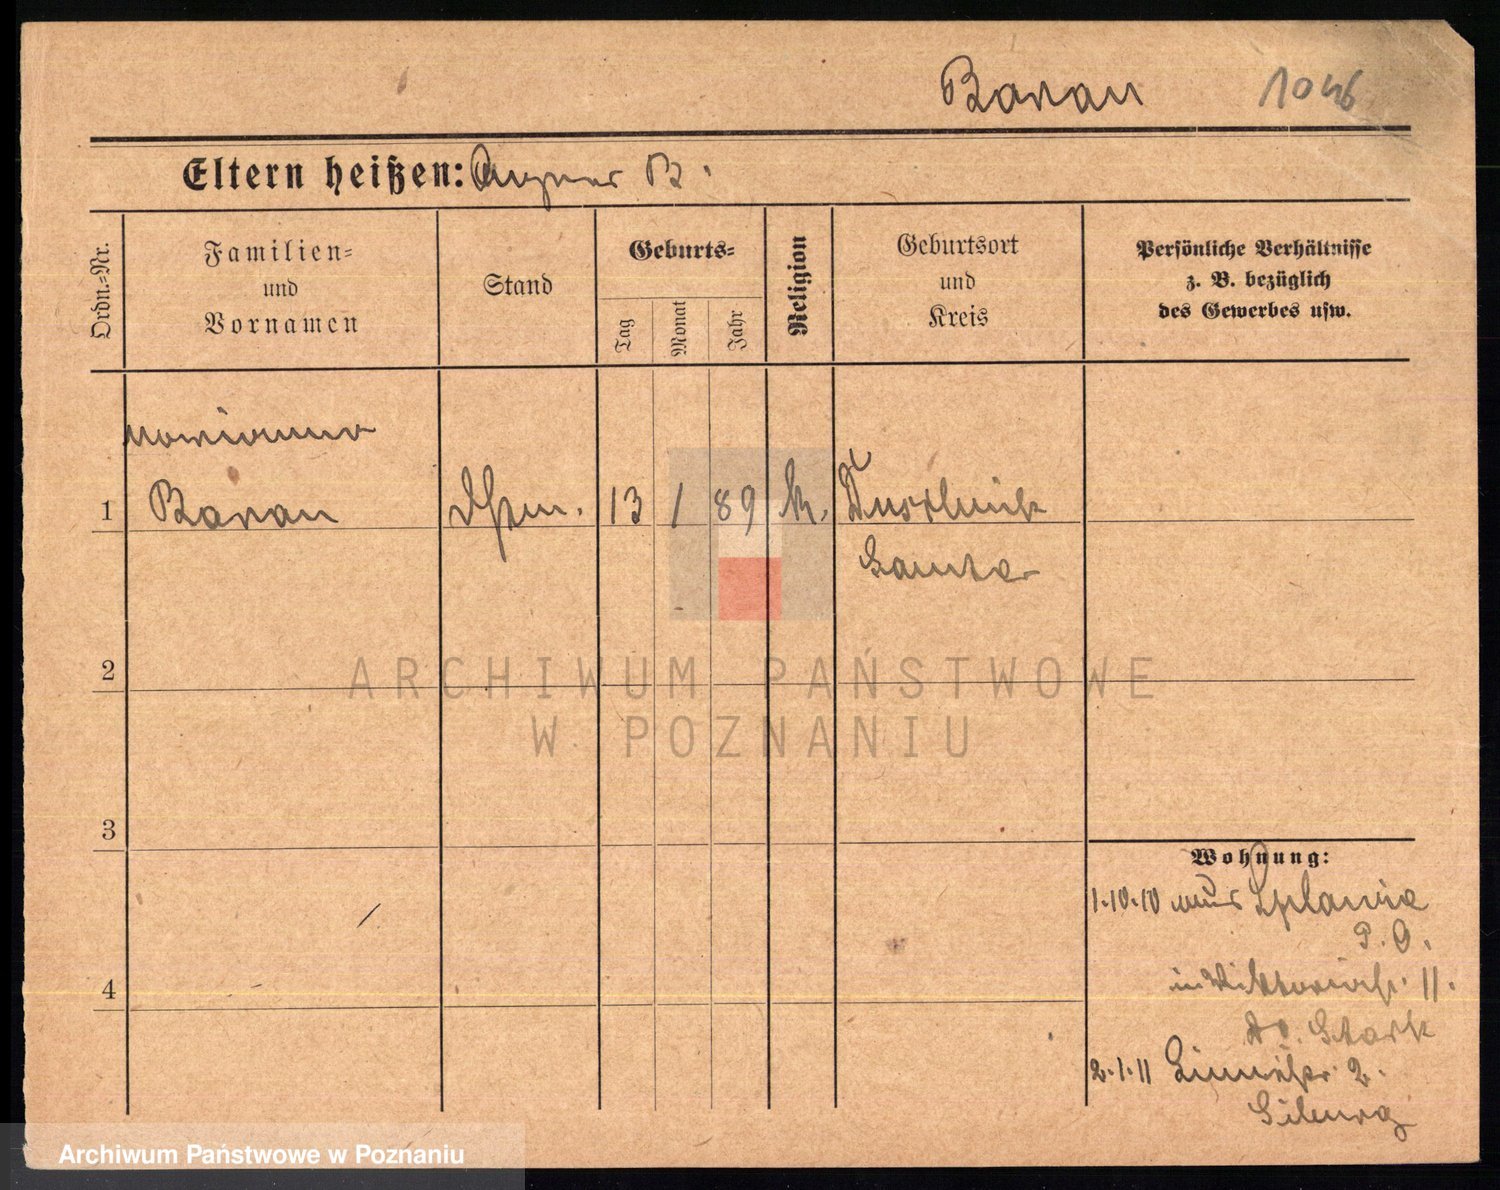 Baran 1046
Eltern heißen: B.
Ordn.-Nr.
Familien-
und
Vornamen
Stand
Geburts-
Tag
Monat
Jahr
Religion
Geburtsort
und
Kreis
Persönliche Verhältnisse
z. B. bezüglich
des Gewerbes usw.
Marianna
1 Baran 13 1 89 k. Duschnik
Samter
2
ARCHIWUM PAŃSTWOWE
W POZNANIU
3
Wohnung:
1.10.10 Splawie
P. O.
in Viktoriastr. 11.
Dr. Stark
4
2.1.11 2.
Archiwum Państwowe w Poznaniu